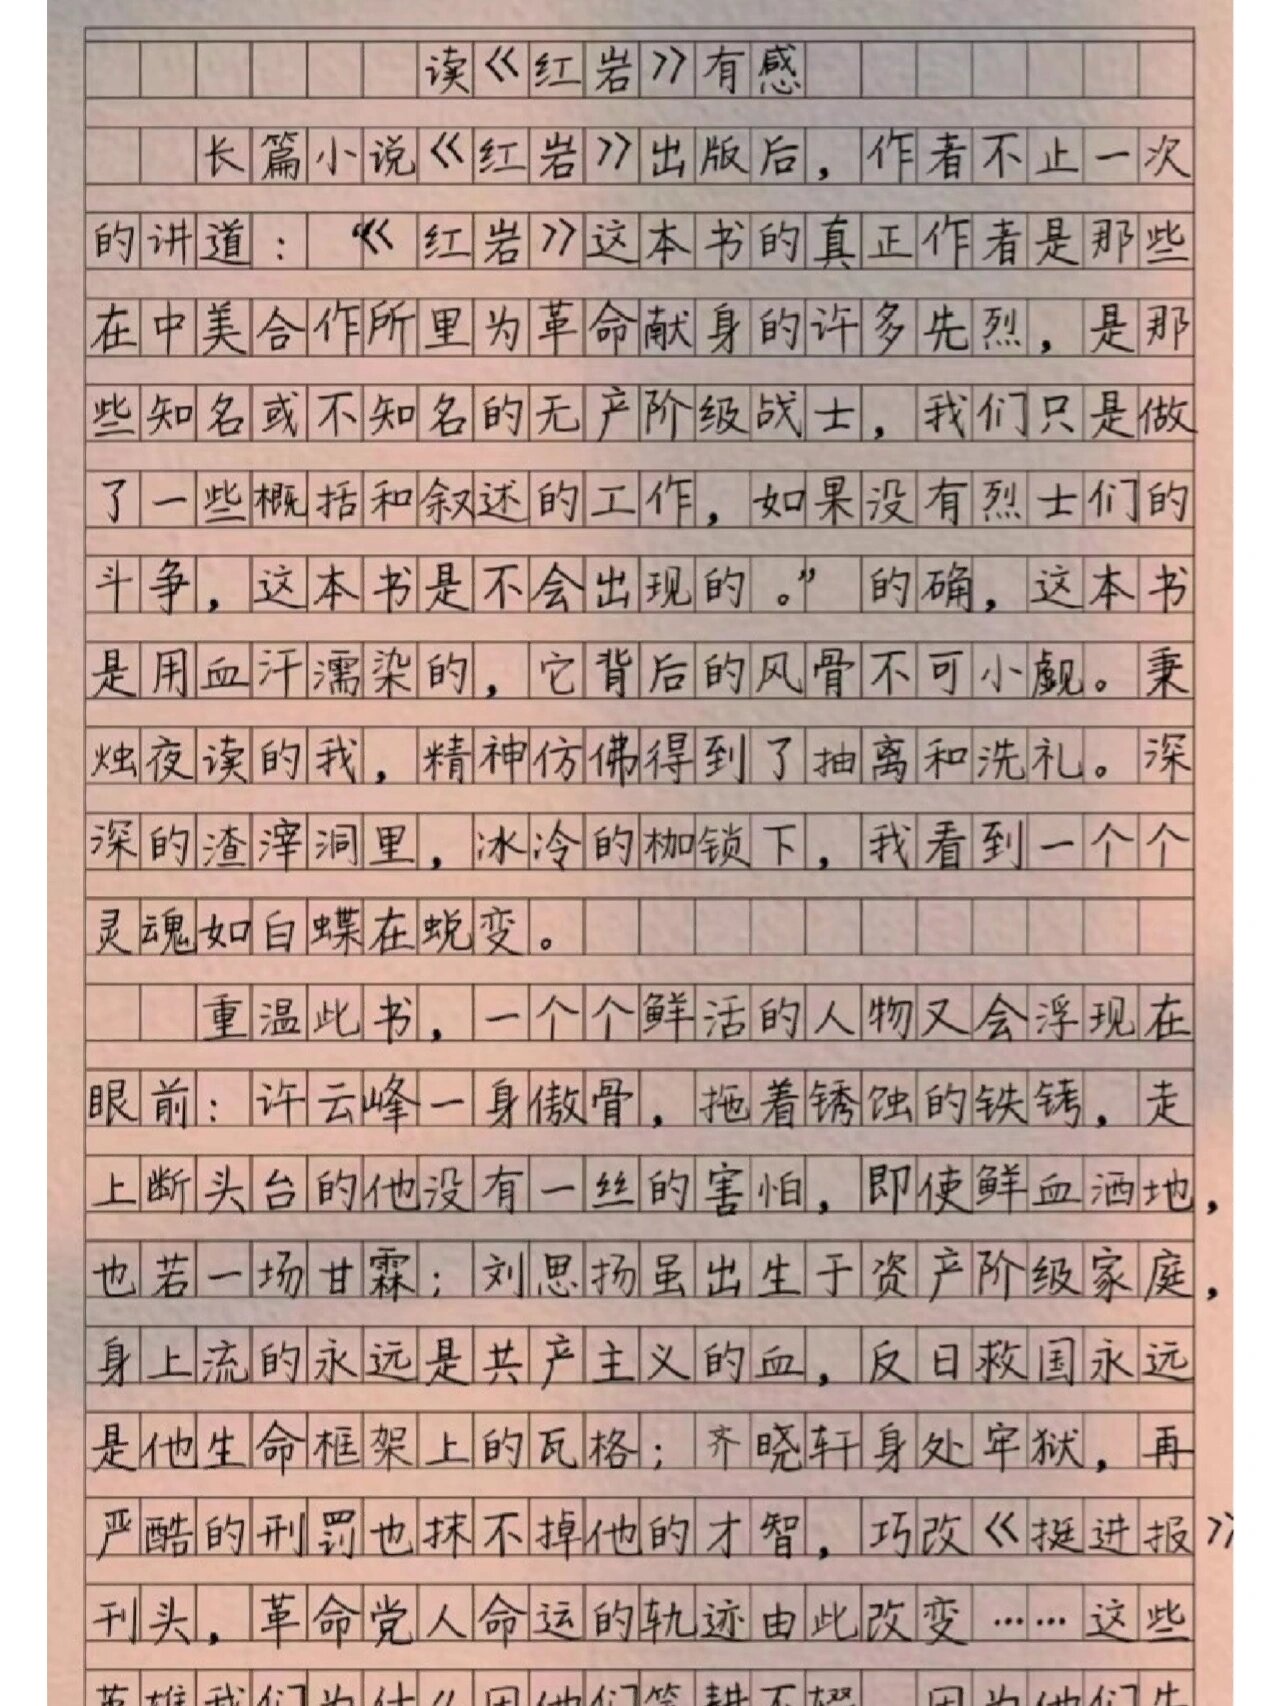 读《红岩》有感
长篇小说《红岩》出版后，作者不止一次
的讲道：“《红岩》这本书的真正作者是那些
在中美合作所里为革命献身的许多先烈，是那
些知名或不知名的无产阶级战士，我们只是做
了一些概括和叙述的工作，如果没有烈士们的
斗争，这本书是不会出现的。”的确，这本书
是用血汗濡染的，它背后的风骨不可小觑。秉
烛夜读的我，精神仿佛得到了抽离和洗礼。深
深的渣滓洞里，冰冷的枷锁下，我看到一个个
灵魂如白蝶在蜕变。
重温此书，一个个鲜活的人物又会浮现在
眼前：许云峰一身傲骨，拖着锈蚀的铁铐，走
上断头台的他没有一丝的害怕，即使鲜血洒地，
也若一场甘霖；刘思扬虽出生于资产阶级家庭，
身上流的永远是共产主义的血，反日救国永远
是他生命框架上的瓦格；齐晓轩身处牢狱，再
严酷的刑罚也抹不掉他的才智，巧改《挺进报》
刊头，革命党人命运的轨迹由此改变……这些